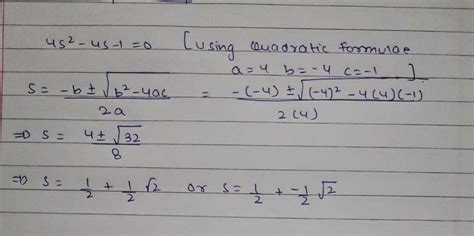 4s² - 4s - 1 = 0 [using Quadratic formulae
a = 4 b = -4 c = -1 ]
s = (-b ± √(b² - 4ac))/(2a) = (-(-4) ± √((-4)² - 4(4)(-1)))/(2(4))
⇒ s = (4 ± √32)/8
⇒ s = 1/2 + 1/2 √2 or s = 1/2 + -1/2 √2